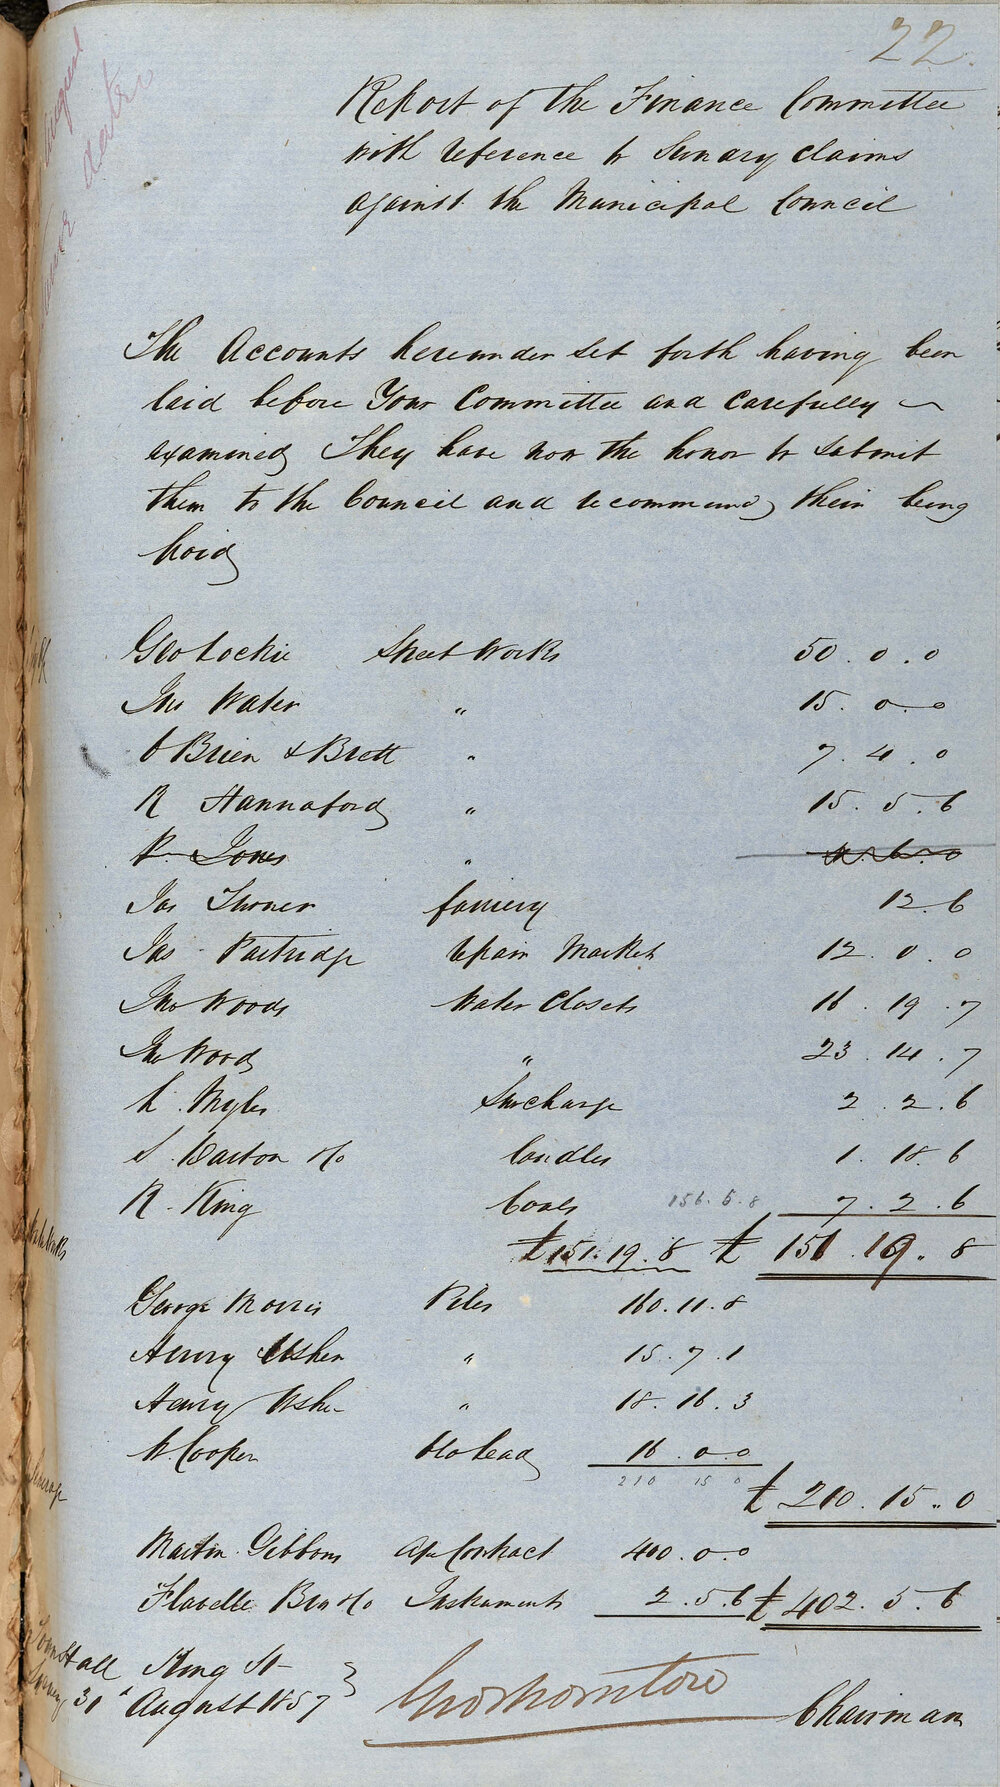 22.
Report of the Finance Committee
with reference to Sundry claims
against the Municipal Council
The Accounts hereunder set forth having been
laid before Your Committee and Carefully
examined They have now the honor to submit
them to the Council and recommend their being
paid
Geo Lockie Street Works 50 . 0 . 0
Jno Water " 15 . 0 . 0
O'Brien & Brett " 7 . 4 . 0
R Hannaford " 15 . 5 . 6
P Jones " 6 . 0
Jas Turner farriery 12 . 6
Jas Partridge repair Market 12 . 0 . 0
Jno Woods Water Closets 16 . 19 . 7
Jno Woods " 23 . 14 . 7
L . Myles Surcharge 2 . 2 . 6
S . Barton & Co Candles 1 . 18 . 6
R . King Coals 156 . 5 . 8 7 . 2 . 6
£ 151 . 19 . 8 £ 151 . 19 . 8
George Morris Pipes 160 . 11 . 8
Henry Usher " 15 . 7 . 1
Henry Usher " 18 . 16 . 3
W. Cooper 16 . 0 . 0
210 15 0
£ 210 . 15 . 0
Martin Gibbons a/c Contract 400 . 0 . 0
Flavelle Bros & Co Instruments 2 . 5 . 6 £ 402 . 5 . 6
Town Hall King St
Sydney 31st August 1857
Chairman